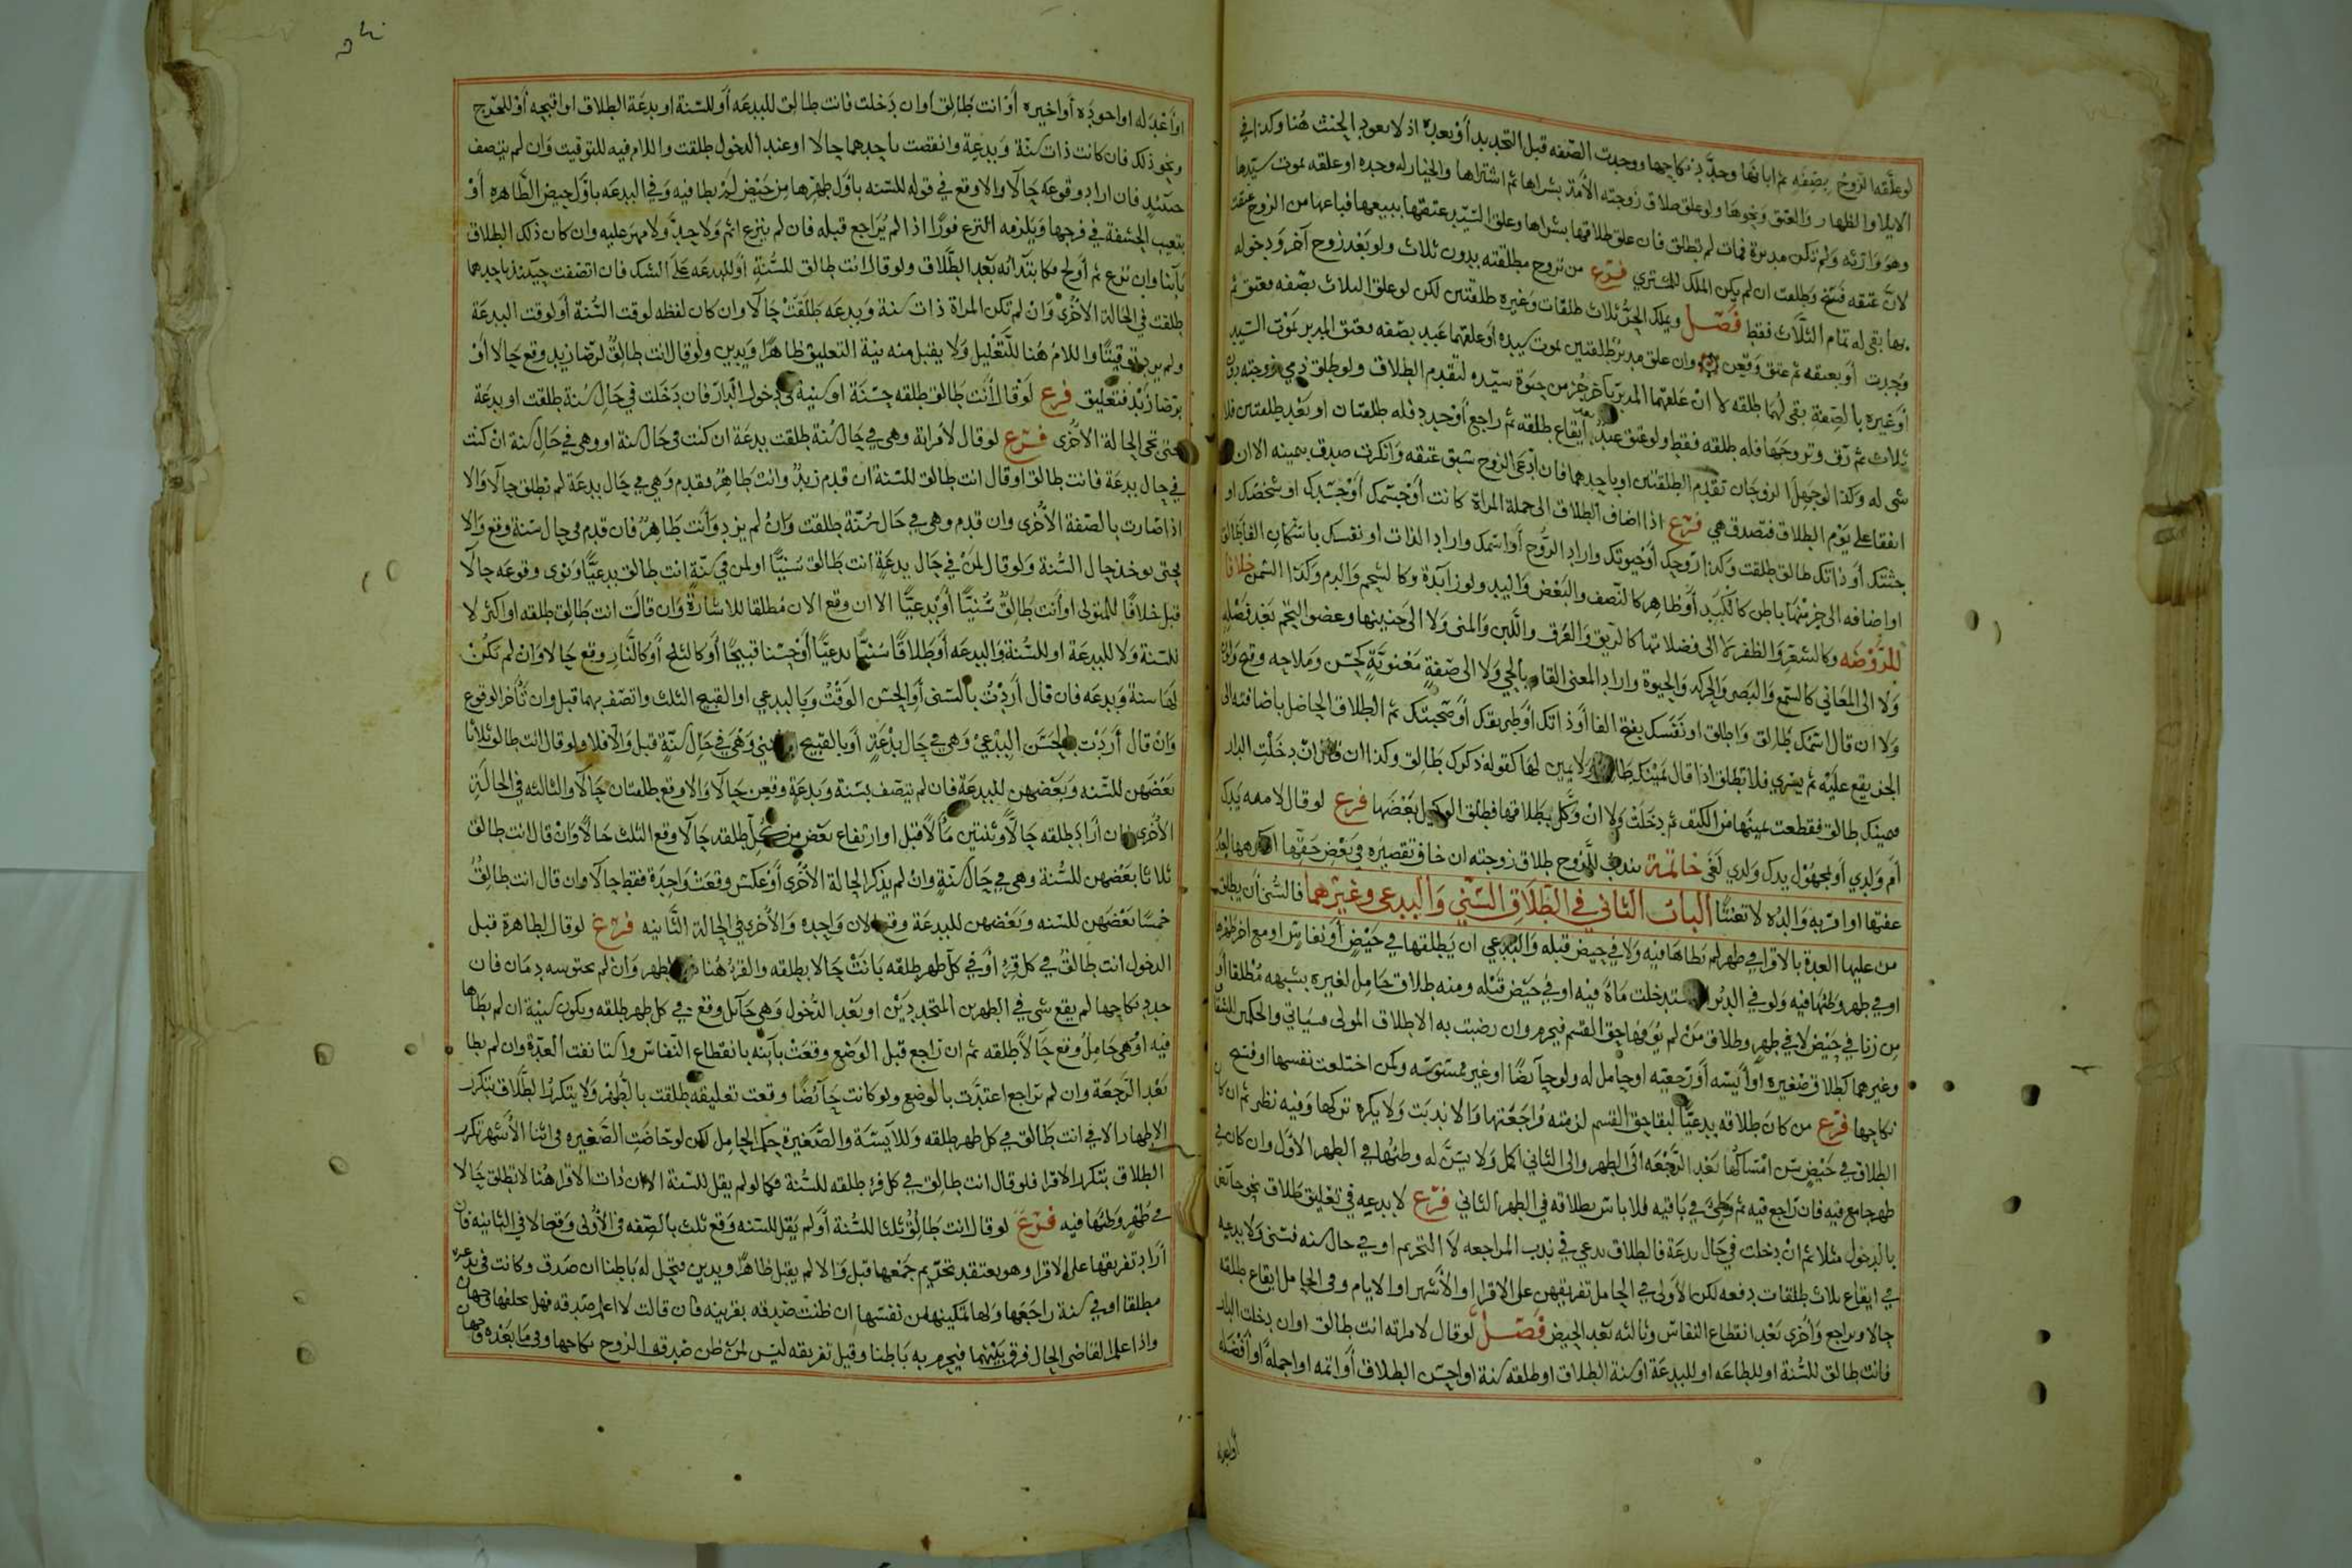 لو علقها الزوج بصفه ثم ابانها وجدد نكاحها ووجدت الصفه قبل التجديد أو بعده اذ لا يعود الحنث هنا وكذا في
الايلا والظهار والعتق ونحوها ولو علق طلاق زوجته الأمة بشراها ثم اشتراها والخيار له وحده او علقه بموت سيدها
وهو وارثه ولم تكن مدبرة فمات لم تطلق فان علق طلاقها بشراها وعلق السيد عتقها ببيعها فباعها من الزوج عتقت
لان عتقه فسخ وطلقت ان لم يكن الملك للمشتري فرع من تزوج مطلقته بدون ثلاث ولو بعد زوج آخر ودخوله
بها بقي له تمام الثلاث فقط فصل ويملك الحر ثلاث طلقات وغيره طلقتين لكن لو علق الثلاث بصفه فعتق ثم
وجدت أو بعتقه ثم عتق وقعن وان علق مدبر طلقتين بموت سيده او علقهما عبد بصفه فعتق المدبر بموت السيد
أو غيره بالصفة بقي لهما طلقه لا ان علقهما المدبر بآخر جزء من حيوة سيده لتقدم الطلاق ولو طلق ذمي زوجته دون
ثلاث ثم رق وتزوجها فله طلقه فقط ولو عتق عبد بعد ايقاع طلقه ثم راجع أو جدد فله طلقتان او بعد طلقتين فلا
شي له وكذا لو جهل الزوجان تقدم الطلقتين او باحدهما فان ادعى الزوج سبق عتقه وانكرت صدق بيمينه الا ان
اتفقا على يوم الطلاق فتصدق هي فرع اذا اضاف الطلاق الى جملة المراة كانت أو جسمك أو جسدك او شخصك او
جثتك أو ذاتك طالق طلقت وكذا روحك أو حيوتك واراد الروح أو اسمك واراد الذات او نفسك باسكان الفا طالق
او اضافه الى جزء منها باطن كالكبد أو ظاهر كالنصف والبعض واليد ولو زايدة وكالشحم والدم وكذا السمن خلافا
للروضه وكالشعر والظفر لا الى فضلاتها كالريق والعرق واللبن والمنى ولا الى جنينها وعضو التحم بعد فصله
ولا الى المعاني كالسمع والبصر والحركه والحيوة واراد المعنى القايم بالحي ولا الى صفة معنوية كحسن وملاحه وقبح ولون
ولا ان قال اسمك طالق واطلق او نفسك بفتح الفا أو ذاتك أو طريقك أو صحبتك ثم الطلاق الحاصل باضافته الى
الجزء يقع عليه ثم يسري فلا تطلق اذا قال يمينك طالق ولا يمين لها كقوله ذكرك طالق وكذا ان قال ان دخلت الدار
فيمينك طالق فقطعت يمينها من الكتف ثم دخلت ولا ان وكل بطلاقها فطلق الوكيل بعضها فرع لو قال لامه يدك
أم ولدي أو لمجهول يدك ولدي لغى خاتمة يندب للزوج طلاق زوجته ان خاف تقصيره في بعض حقها او كرهها لعدم
عفتها او امر به والده لا تعنتا الباب الثاني في الطلاق السني والبدعي وغيرهما فالسني أن يطلق
من عليها العدة بالاقرا في طهر لم يطاها فيه ولا في حيض قبله والبدعي ان يطلقها في حيض أو نفاس او مع اخر طهرها
او في طهر وطئها فيه ولو في الدبر او استدخلت ماه فيه او في حيض قبله ومنه طلاق حامل لغيره بشبهه مطلقا أو
من زنا في حيض لا في طهر وطلاق من لم يوفها حق القسم فيحرم وان رضيت به الا طلاق المولى وسياتي والحكمين للشقاق
وغيرهما كطلاق صغيره او آيسه أو رجعيه او حامل له ولو حايضا او غير ممسوسه وكمن اختلعت نفسها او فسخ
نكاحها فرع من كان طلاقه بدعيا لبقا حق القسم لزمته مراجعتها والا ندبت ولا يكره تركها وفيه نظر ثم ان كان
الطلاق في حيض سن امساكها بعد الرجعه الى الطهر والى الثاني اكمل ولا يسن له وطئها في الطهر الاول وان كان في
طهر جامع فيه فان راجع فيه ثم وطئ في باقيه فلا باس بطلاقه في الطهر الثاني فرع لا بدعيه في تعليق طلاق نحو حايض
بالدخول مثلا ثم ان دخلت في حال بدعة فالطلاق بدعي في ندب المراجعه لا التحريم او في حال سنه فسني ولا بدعيه
في ايقاع ثلاث طلقات دفعه لكن الأولى في الحامل تفريقهن على الاقرا او الأشهر او الايام وفي الحامل ايقاع طلقه
حالا ويراجع وأخرى بعد انقطاع النفاس وثالثه بعد الحيض فصل لو قال لامراته انت طالق او ان دخلت الدار
فانت طالق للسنة او للطاعه او للبدعة او سنة الطلاق او طلقه سنة او احسن الطلاق أو اتمه او اجمله او أفضله
أو اعدله
او أعدله او احوده أو اخيره أو انت طالق او ان دخلت فانت طالق للبدعه أو للسنة او بدعة الطلاق او اقبحه أو للحرج
ونحو ذلك فان كانت ذات سنة وبدعة واتصفت باحدهما حالا او عند الدخول طلقت واللام فيه للتوقيت وان لم يتصف
حينئذ فان اراد وقوعه حالا والا وقع في قوله للسنه باول طهرها من حيض لم يطا فيه وفي البدعه باول حيض الطاهره أو
بتغييب الحشفة في فرجها ويلزمه النزع فورا اذا لم يراجع قبله فان لم ينزع اثم ولا حد ولا مهر عليه وان كان ذلك الطلاق
باينا وان نزع ثم أولج فكابتدائه بعد الطلاق ولو قال انت طالق للسنة أو للبدعه على الشك فان اتصفت حينئذ باحدهما
طلقت في الحالة الأخرى وان لم تكن المراة ذات سنة وبدعه طلقت حالا وان كان لفظه لوقت السنة أو لوقت البدعة
ولم يرد توقيتا واللام هنا للتعليل ولا يقبل منه نية التعليق ظاهرا ويدين ولو قال انت طالق لرضا زيد وقع حالا أو
برضا زيد فتعليق فرع لو قال انت طالق طلقه حسنة او سنية في دخول الدار فان دخلت في حال سنة طلقت او بدعة
فحتى تجي الحالة الأخرى فرع لو قال لامراته وهي في حال سنة طلقت بدعة ان كنت في حال سنة او وهي في حال سنة ان كنت
في حال بدعة فانت طالق او قال انت طالق للسنة ان قدم زيد وانت طاهر فقدم وهي في حال بدعة لم تطلق حالا والا
اذا صارت بالصفة الأخرى وان قدم وهي في حال سنة طلقت وان لم يزد وأنت طاهر فان قدم في حال سنة وقع والا
فحتى توجد حال السنة ولو قال لمن في حال بدعة انت طالق سنيا او لمن في سنة انت طالق بدعيا ونوى وقوعه حالا
قبل خلافا للمتولى او أنت طالق سنيا أو بدعيا الا ان وقع الان مطلقا للاشارة وان قال انت طالق طلقه او اكثر لا
للسنة ولا للبدعة او للسنة والبدعه أو طلاقا سنيا بدعيا أو حسنا قبيحا أو كالثلج أو كالنار وقع حالا وان لم تكن
لها سنة وبدعه فان قال أردت بالسنى أو الحسن الوقت وبالبدعي او القبيح الثلث واتصف بهما قبل وان تأخر الوقوع
وان قال أردت بالحسن البدعي وهي في حال بدعة أو بالقبيح السني وهي في حال سنة قبل والا فلا ولو قال انت طالق ثلاثا
بعضهن للسنه وبعضهن للبدعة فان لم تتصف بسنة وبدعة وقعن حالا والا وقع طلقتان حالا والثالثه في الحالة
الأخرى فان أراد طلقه حالا وثنتين مآلا قبل او ارتفاع بعض من كل طلقه حالا وقع الثلث حالا وان قال انت طالق
ثلاثا بعضهن للسنة وهي في حال سنة وان لم يذكر الحالة الأخرى أو عكس وقعت واحدة فقط حالا وان قال انت طالق
خمسا بعضهن للسنه وبعضهن للبدعة وقع الان واحده والأخرى في الحالة الثانيه فرع لو قال لطاهرة قبل
الدخول انت طالق في كل قرء أو في كل طهر طلقه بانت حالا بطلقه والقرء هنا الطهر وان لم يحتوسه دمان فان
جدد نكاحها لم يقع شي في الطهرين المتجددين او بعد الدخول وهي حائل وقع في كل طهر طلقه وتكون سنية ان لم يطاها
فيه او وهي حامل وقع حالا طلقه ثم ان راجع قبل الوضع وقعت ثانيه بانقطاع النفاس واستانفت العدة وان لم يطا
بعد الرجعة وان لم يراجع اعتدت بالوضع ولو كانت حائضا وقعت تعليقه طلقت بالطهر ولا يتكرر الطلاق بتكرر
الاطهار الا في انت طالق في كل طهر طلقه وللآيسة والصغيرة حكم الحامل لكن لو حاضت الصغيره في اثنا الأشهر تكرر
الطلاق بتكرر الاقرا فلو قال انت طالق في كل قرء طلقه للسنة فكما لو لم يقل للسنة الا ان ذات الاقرا هنا لا تطلق حالا
في طهر وطئها فيه فرع لو قال انت طالق ثلثا للسنة أو لم يقل للسنه وقع ثلث بالصفه في الأولى وقع حالا في الثانيه فان
أراد تفريقها على الاقرا وهو يعتقد تحريم جمعها قبل والا لم يقبل ظاهرا ويدين فتحل له باطنا ان صدق وكانت في بدعة
مطلقا او في سنة راجعها ولها تمكينها من نفسها ان ظنت صدقه بقرينه فان قالت لا اعلم صدقه فهل تحلفها وجهان
واذا علم القاضى الحال فرق بينهما فيحرم به باطنا وقيل تفريقه ليس لمن ظن صدقه الزوج نكاحها وفي ما بعده وجهان